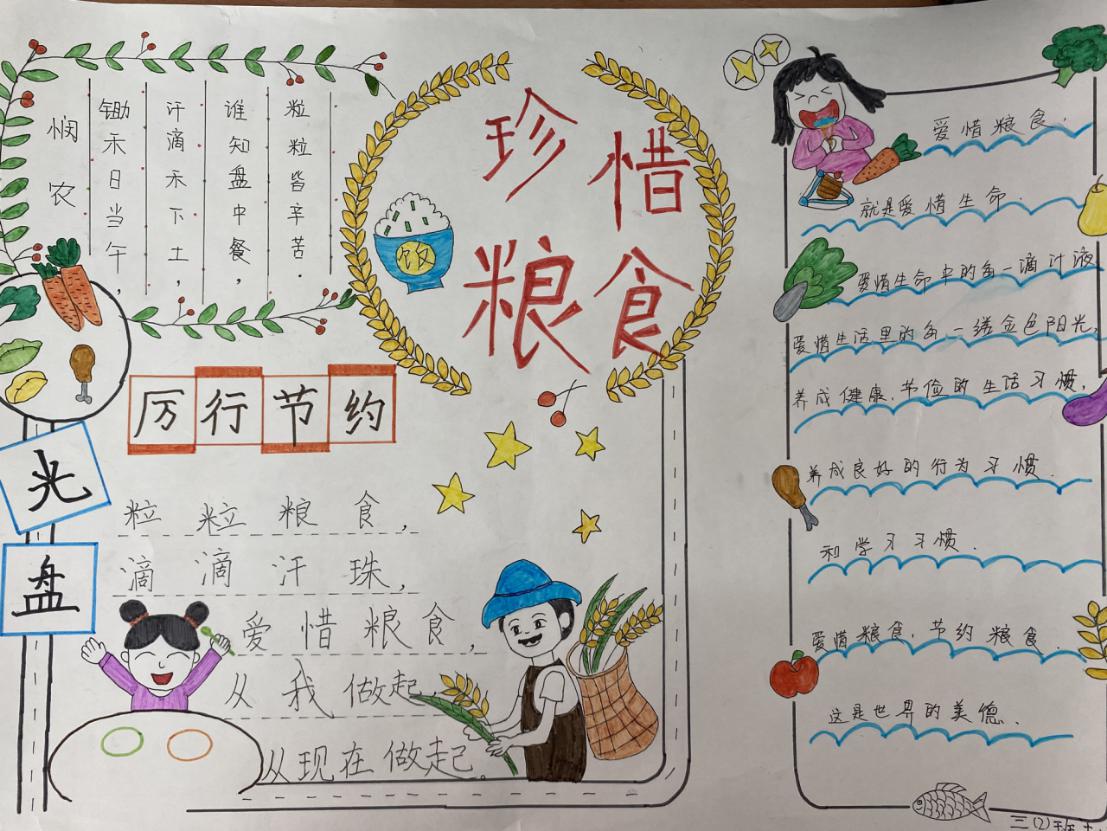 悯农
锄禾日当午，
汗滴禾下土，
谁知盘中餐，
粒粒皆辛苦.
饭
珍惜
粮食
厉行节约
光
盘
粒粒粮食，
滴滴汗珠，
爱惜粮食，
从我做起
从现在做起。
爱惜粮食，
就是爱惜生命.
爱惜生命中的每一滴汁液
爱惜生活里的每一缕金色阳光，
养成健康、节俭的生活习惯，
养成良好的行为习惯.
和学习习惯.
爱惜粮食，节约粮食.
这是世界的美德.
三(2)班